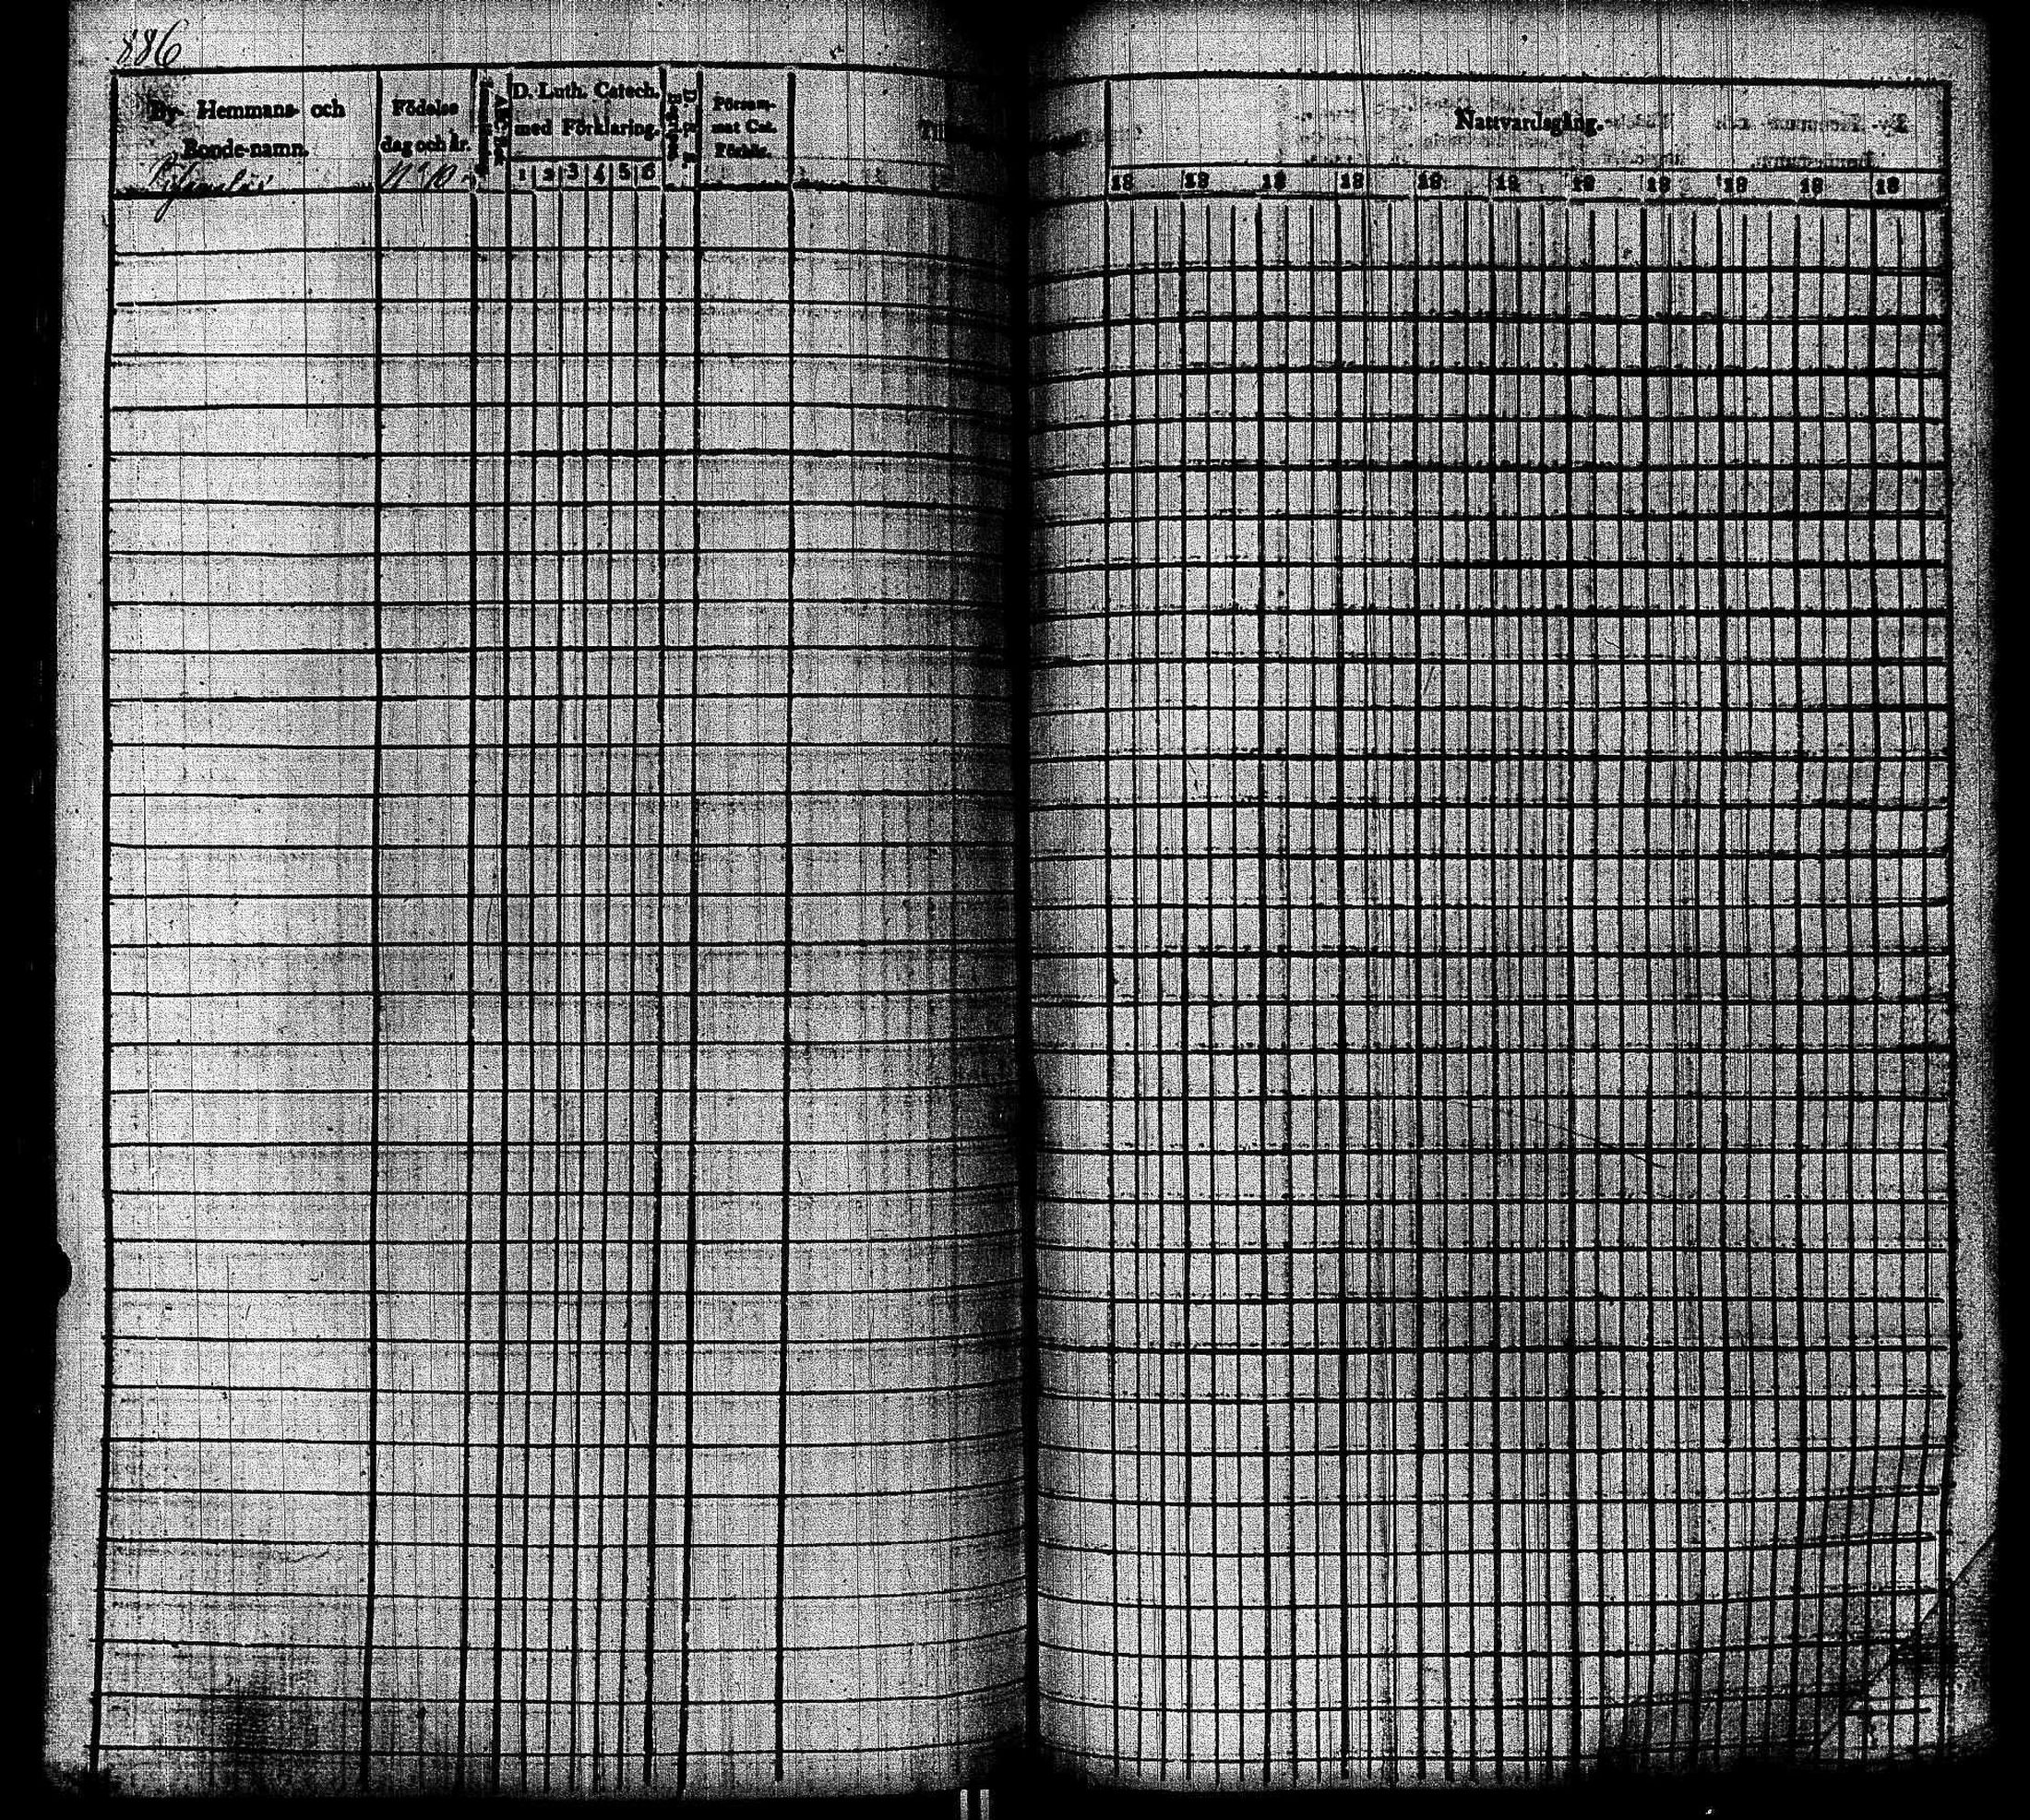 886
By- Hemmans- och
Bonde-namn.
Födelse
dag och år.
No 10
D. Luth. Catech.
med Förklaring.
1 2 3 4 5 6
Försum-
mat Cat.
Förhör.
Nattvardsgång.
18 18 18 18 18 18 18 18 18 18 18